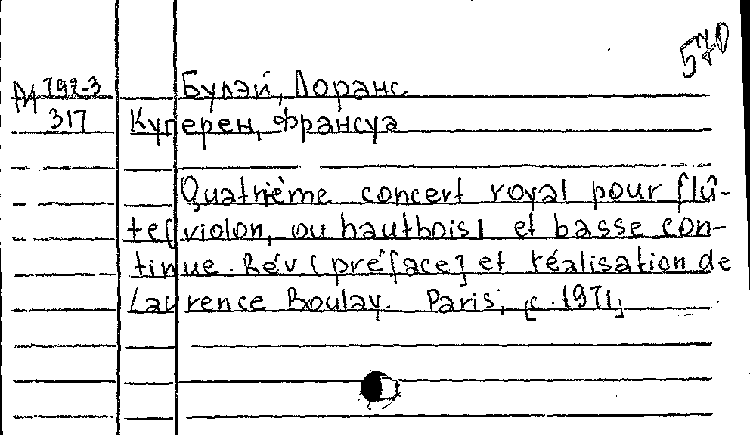 570
М 792-3 Булэй, Лоранс
317 Куперен, Франсуа
Quatrième concert royal pour flû-
te[violon, ou hautbois] et basse con-
tinue. Rév [préface] et réalisation de
Laurence Boulay. Paris, [c. 1971]